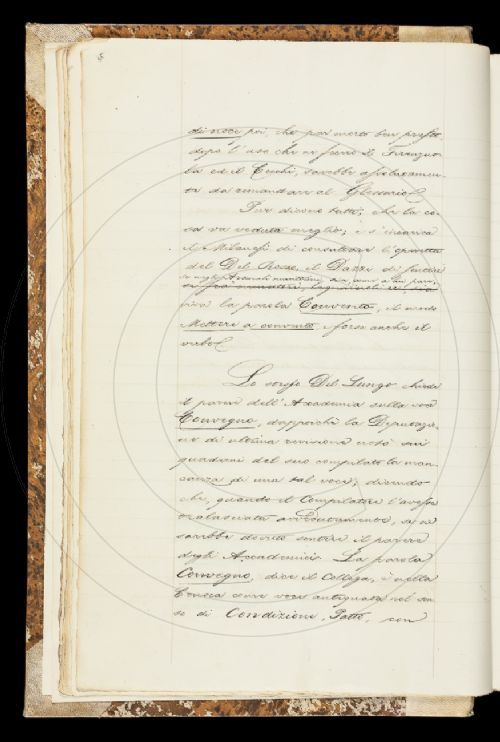 di noce poi, che par morto ben presto
dopo l'uso che ne fecero il Firenzuo-
la ed il Cecchi, sarebbe assolutamen-
te da rimandare al Glossario.
Pur dicono tutti, che la co-
sa va veduta meglio; e s'incarica
il Milanesi di consultare l'operetta
del Del Rosso, il Dazzi di sentire
se negli Arsenali marittimi, sia, come a lui pare,
viva la parola Convento, il modo
Mettere a convento e forse anche il
verbo.
Lo stesso Del Lungo chiede
il parere dell'Accademia sulla voce
Convegno, dappoichè la Deputazio-
ne di ultima revisione notò sui
quaderni del suo compilato la man-
canza di una tal voce; dicendo
che, quando il Compilatore l'avesse
tralasciata avvedutamente, se ne
sarebbe dovuto sentire il parere
degli Accademici. La parola
Convegno, dice il Collega, è nella
Crusca come voce antiquata nel sen-
so di Condizione, Patto, con